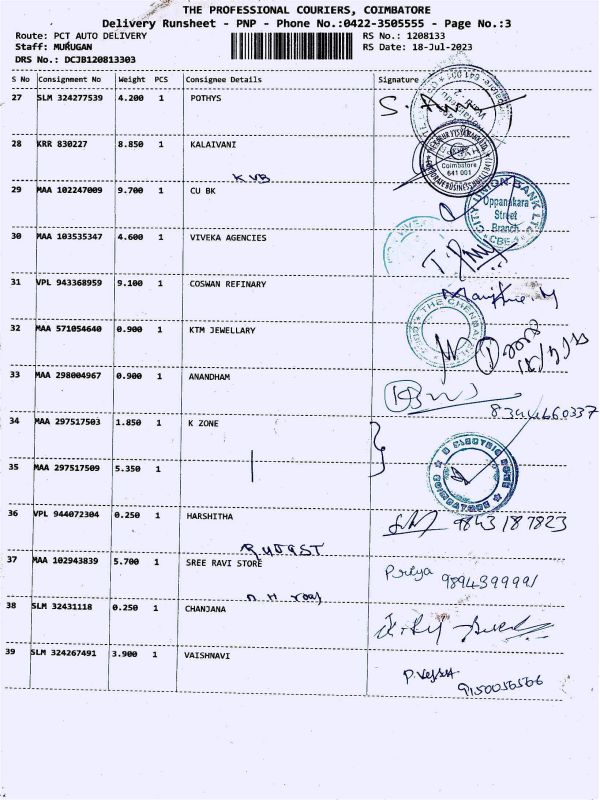 THE PROFESSIONAL COURIERS, COIMBATORE
Delivery Runsheet - PNP - Phone No.:0422-3505555 - Page No.:3
Route: PCT AUTO DELIVERY RS No.: 1208133
Staff: MURUGAN RS Date: 18-Jul-2023
DRS No.: DCJB120813303
S No Consignment No Weight PCS Consignee Details Signature
27 SLM 324277539 4.200 1 POTHYS
28 KRR 830227 8.850 1 KALAIVANI
Coimbatore
641 001
KVB
29 MAA 102247009 9.700 1 CU BK
CITY UNION BANK LTD
Oppanakara
Street
Branch
CBE-1
30 MAA 103535347 4.600 1 VIVEKA AGENCIES
31 VPL 943368959 9.100 1 COSWAN REFINARY
32 MAA 571054640 0.900 1 KTM JEWELLARY
THE CHENNAI
33 MAA 298004967 0.900 1 ANANDHAM
8344460337
34 MAA 297517503 1.850 1 K ZONE
35 MAA 297517509 5.350 1
ELECTRIC ZONE
COIMBATORE
36 VPL 944072304 0.250 1 HARSHITHA
9843187823
37 MAA 102943839 5.700 1 SREE RAVI STORE
Priya 9894399991
38 SLM 32431118 0.250 1 CHANJANA
39 SLM 324267491 3.900 1 VAISHNAVI
9150056566